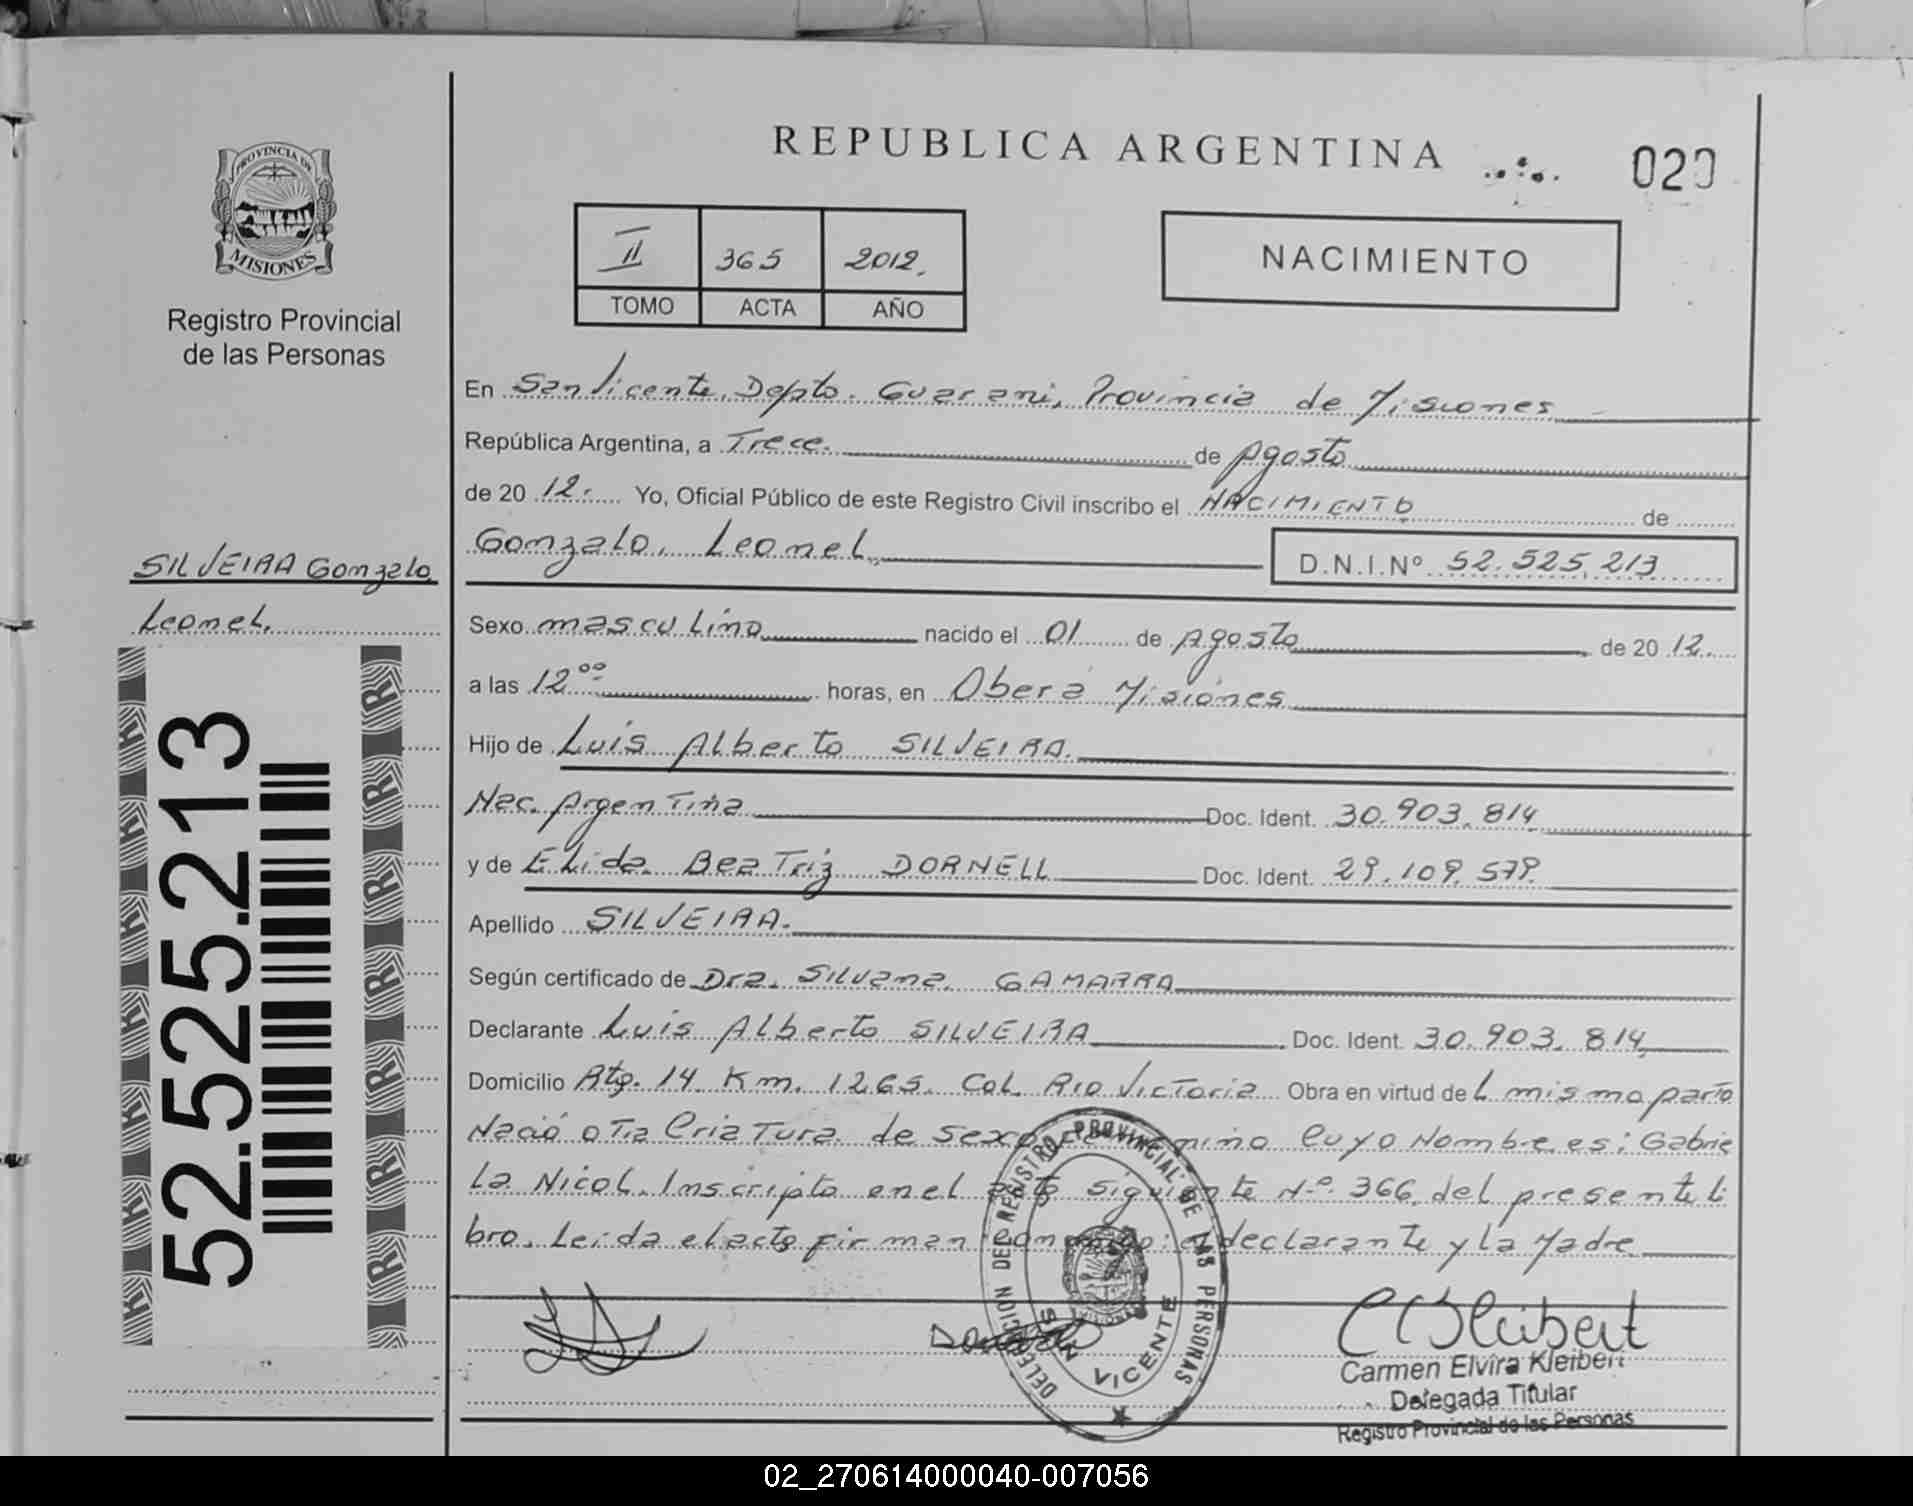 REPUBLICA ARGENTINA
020
PROVINCIA DE
MISIONES
Registro Provincial
de las Personas
II 365 2012.
TOMO ACTA AÑO
NACIMIENTO
En San Vicente, Depto. Guarani, Provincia de Misiones
República Argentina, a Trece. de Agosto
de 20 12. Yo, Oficial Público de este Registro Civil inscribo el NACIMIENTO de
Gonzalo, Leonel, D.N.I.Nº 52.525.213
SILVEIRA Gonzalo
Leonel.
52.525.213
Sexo masculino nacido el 01 de Agosto de 20 12.
a las 12ºº horas, en Oberá Misiones
Hijo de Luis Alberto SILVEIRA.
Nac. Argentina Doc. Ident. 30.903.814
y de Elida Beatriz DORNELL Doc. Ident. 29.109.579.
Apellido SILVEIRA.
Según certificado de Dra. Silvana GAMARRA
Declarante Luis Alberto SILVEIRA Doc. Ident. 30.903.814
Domicilio Rtg. 14 Km. 1265. Col. Rio Victoria Obra en virtud de L mismo parto
Nació otra Criatura de sexo femenino Cuyo Nombre es: Gabrie
la Nicol. Inscripto en el acto siguiente N.º 366 del presente li
bro. Leída el acto firman conmigo: el declarante y la Madre
DELEGACION DEL REGISTRO PROVINCIAL DE LAS PERSONAS
SAN VICENTE
CBKleibert
Carmen Elvira Kleibert
Delegada Titular
Registro Provincial de las Personas
02_270614000040-007056